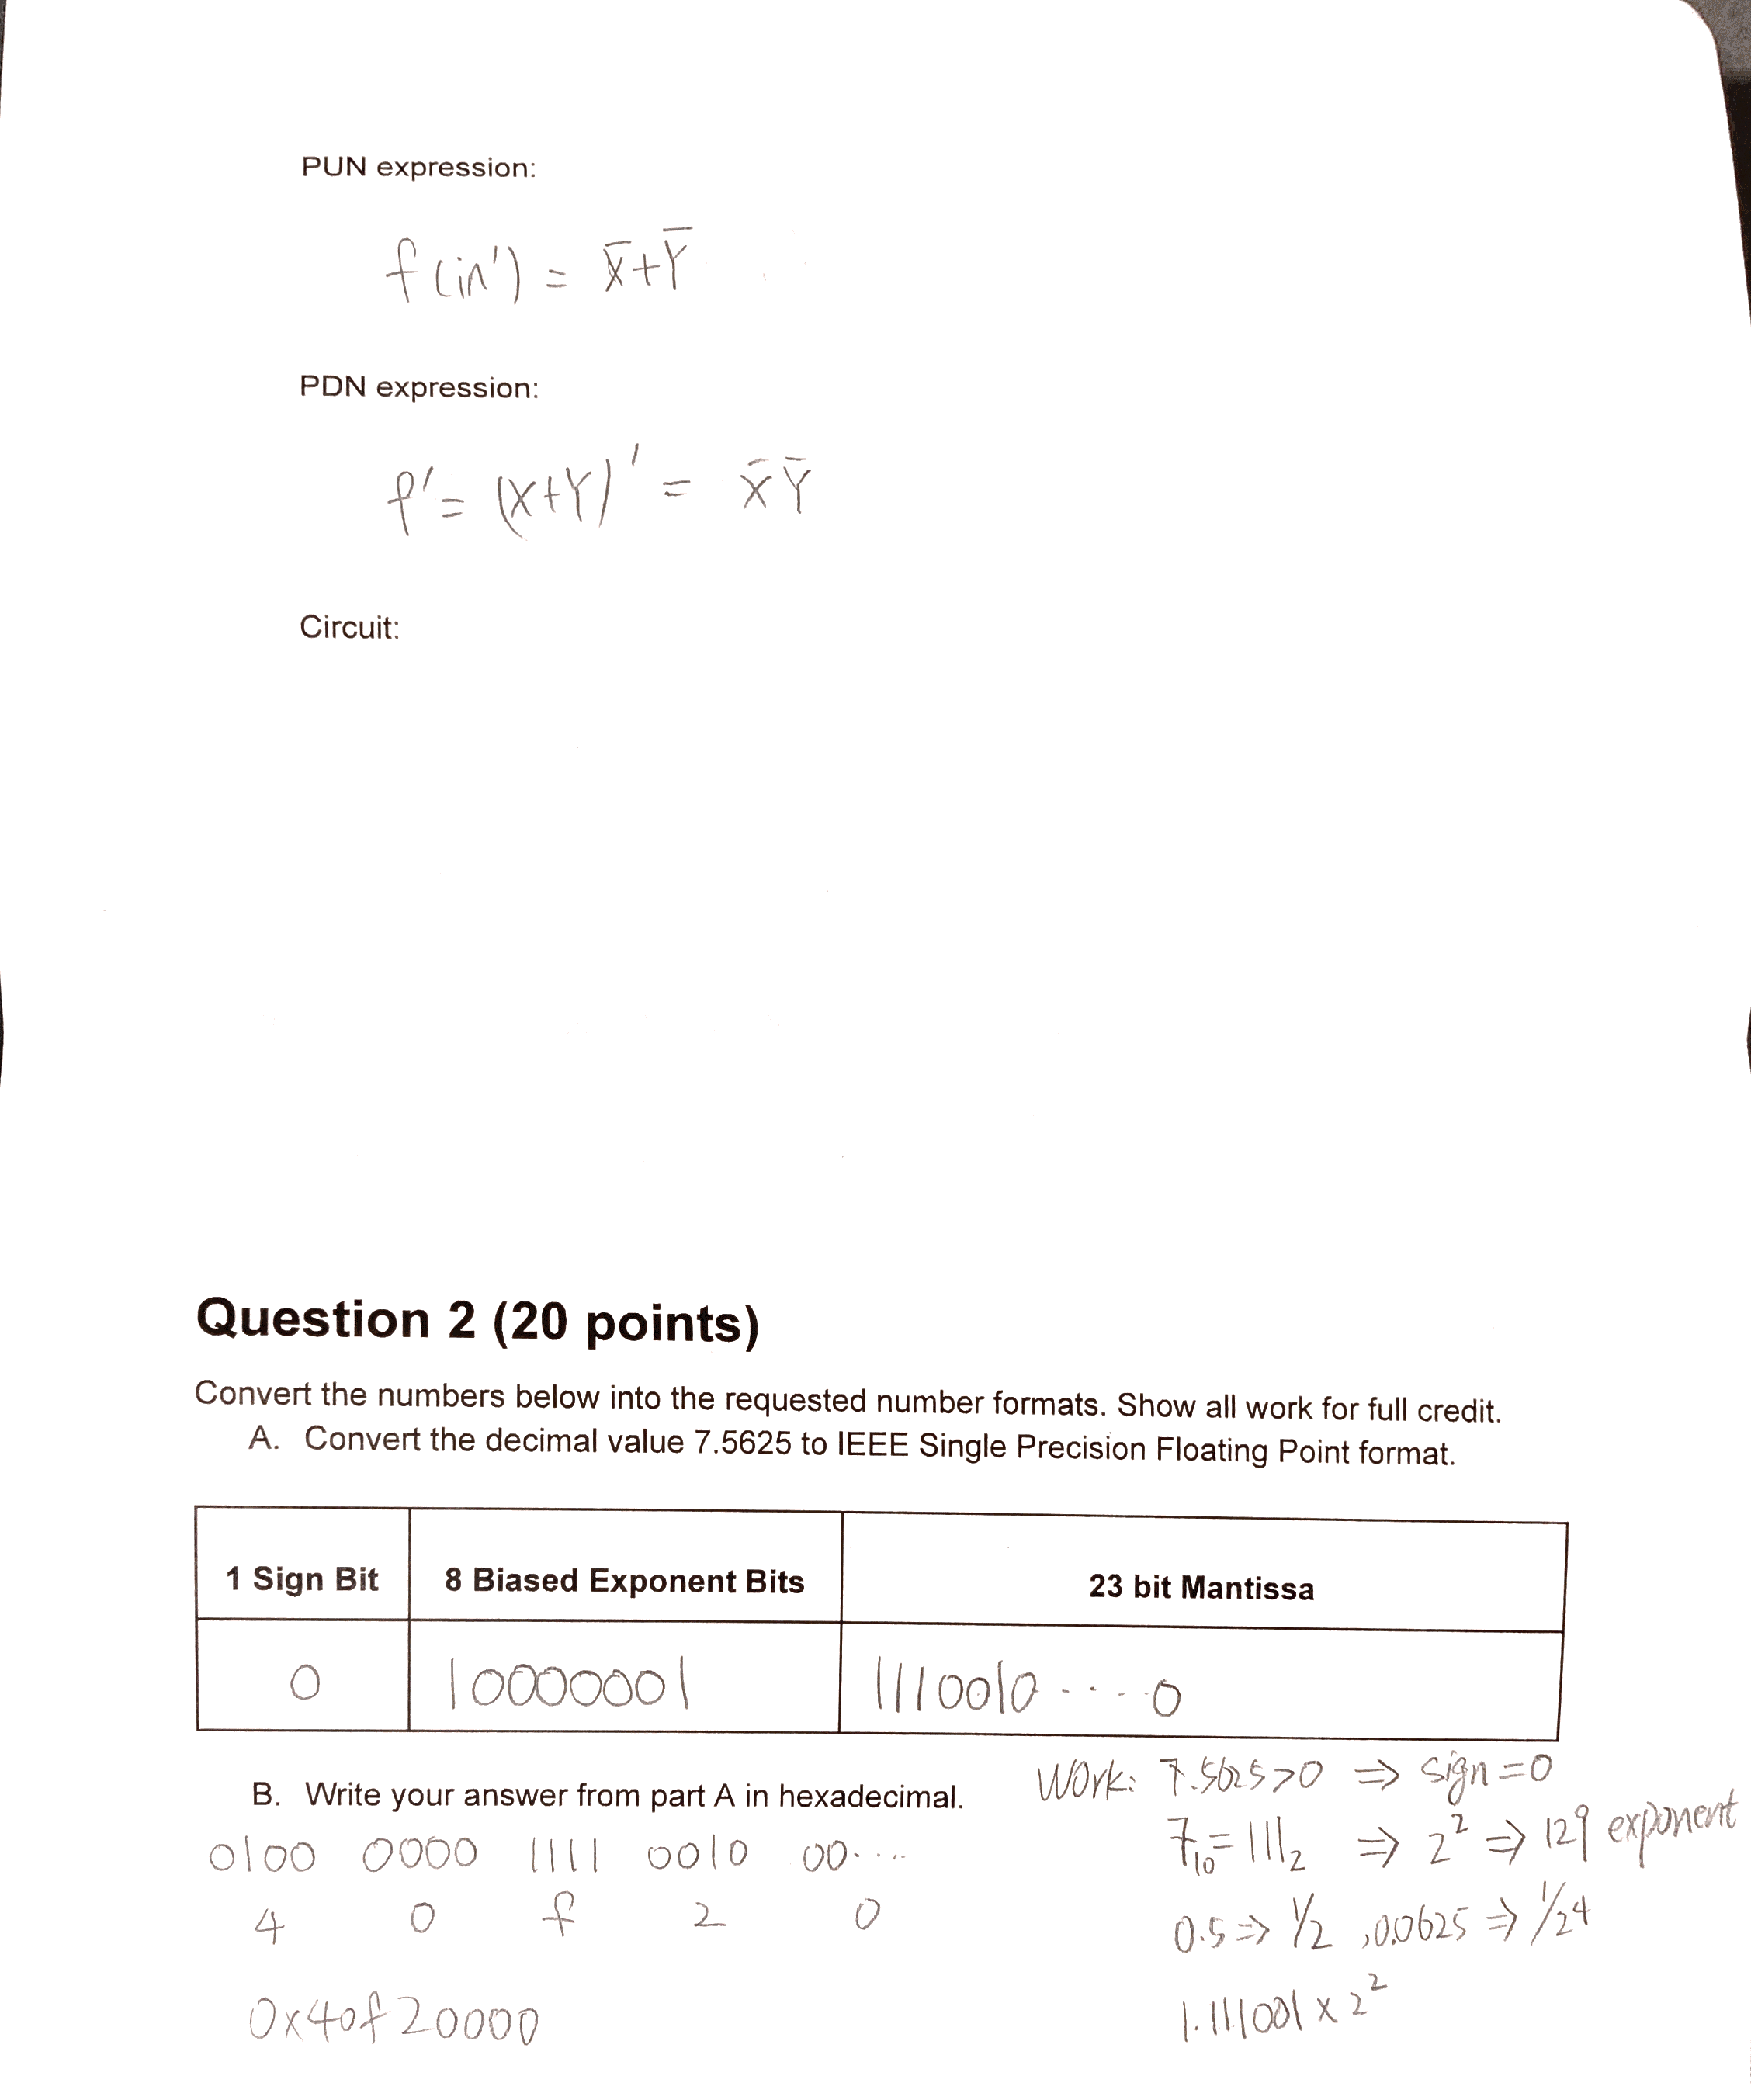 PUN expression:
f(in') = X̅+Y̅
PDN expression:
f'= (X+Y)' = X̅ Y̅
Circuit:
Question 2 (20 points)
Convert the numbers below into the requested number formats. Show all work for full credit.
A. Convert the decimal value 7.5625 to IEEE Single Precision Floating Point format.
1 Sign Bit 8 Biased Exponent Bits 23 bit Mantissa
0 10000001 1110010 ---- 0
Work: 7.5625>0 ⇒ sign=0
B. Write your answer from part A in hexadecimal.
7₁₀=111₂ ⇒ 2² ⇒ 129 exponent
0100 0000 1111 0010 00.....
4 0 f 2 0
0.5⇒ 1/2 ,0.0625 ⇒ 1/2⁴
1.111001 x 2²
0x40f20000